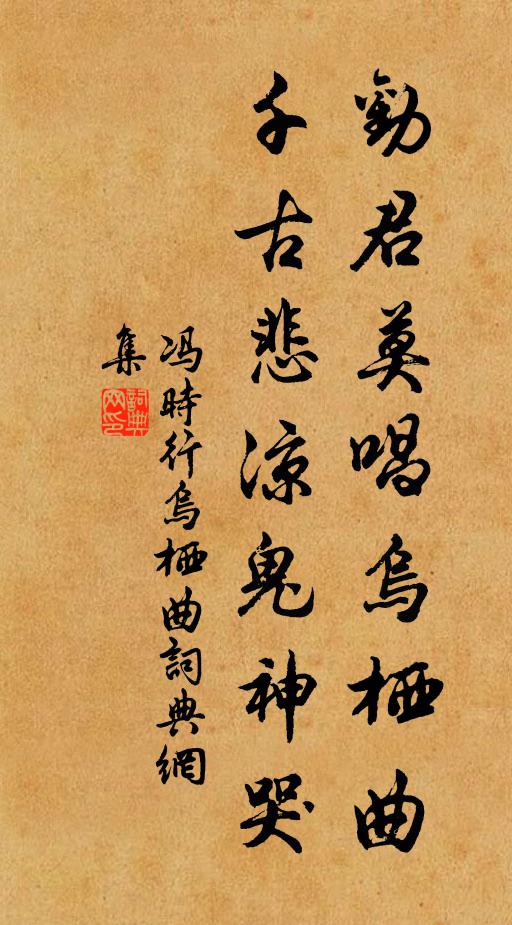 勸君莫唱烏栖曲
千古悲涼鬼神哭
冯時行烏栖曲詞典網
集
詞典網印